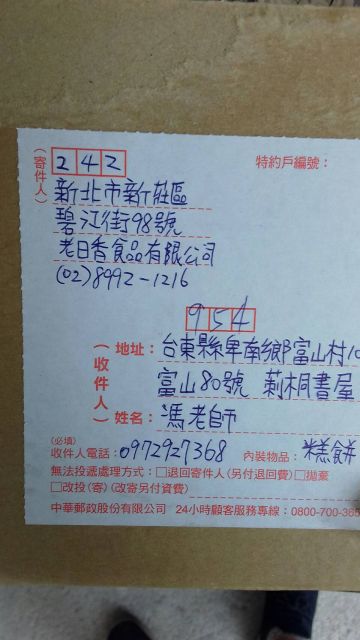 (寄件人)
242
特約戶編號：
新北市新莊區
碧江街98號
老日香食品有限公司
(02)8992-1216
954
(收件人)
地址：台東縣卑南鄉富山村10
富山80號 莿桐書屋
姓名：馮老師
(必填)
收件人電話：0972927368 內裝物品：糕餅
無法投遞處理方式：□退回寄件人(另付退回費)□拋棄
□改投(寄)(改寄另付資費)
中華郵政股份有限公司 24小時顧客服務專線：0800-700-365